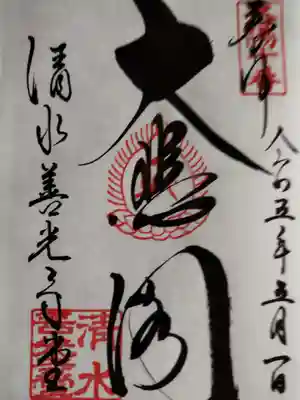 奉拝
令和五年五月一日
大悲閣
清水善光寺堂